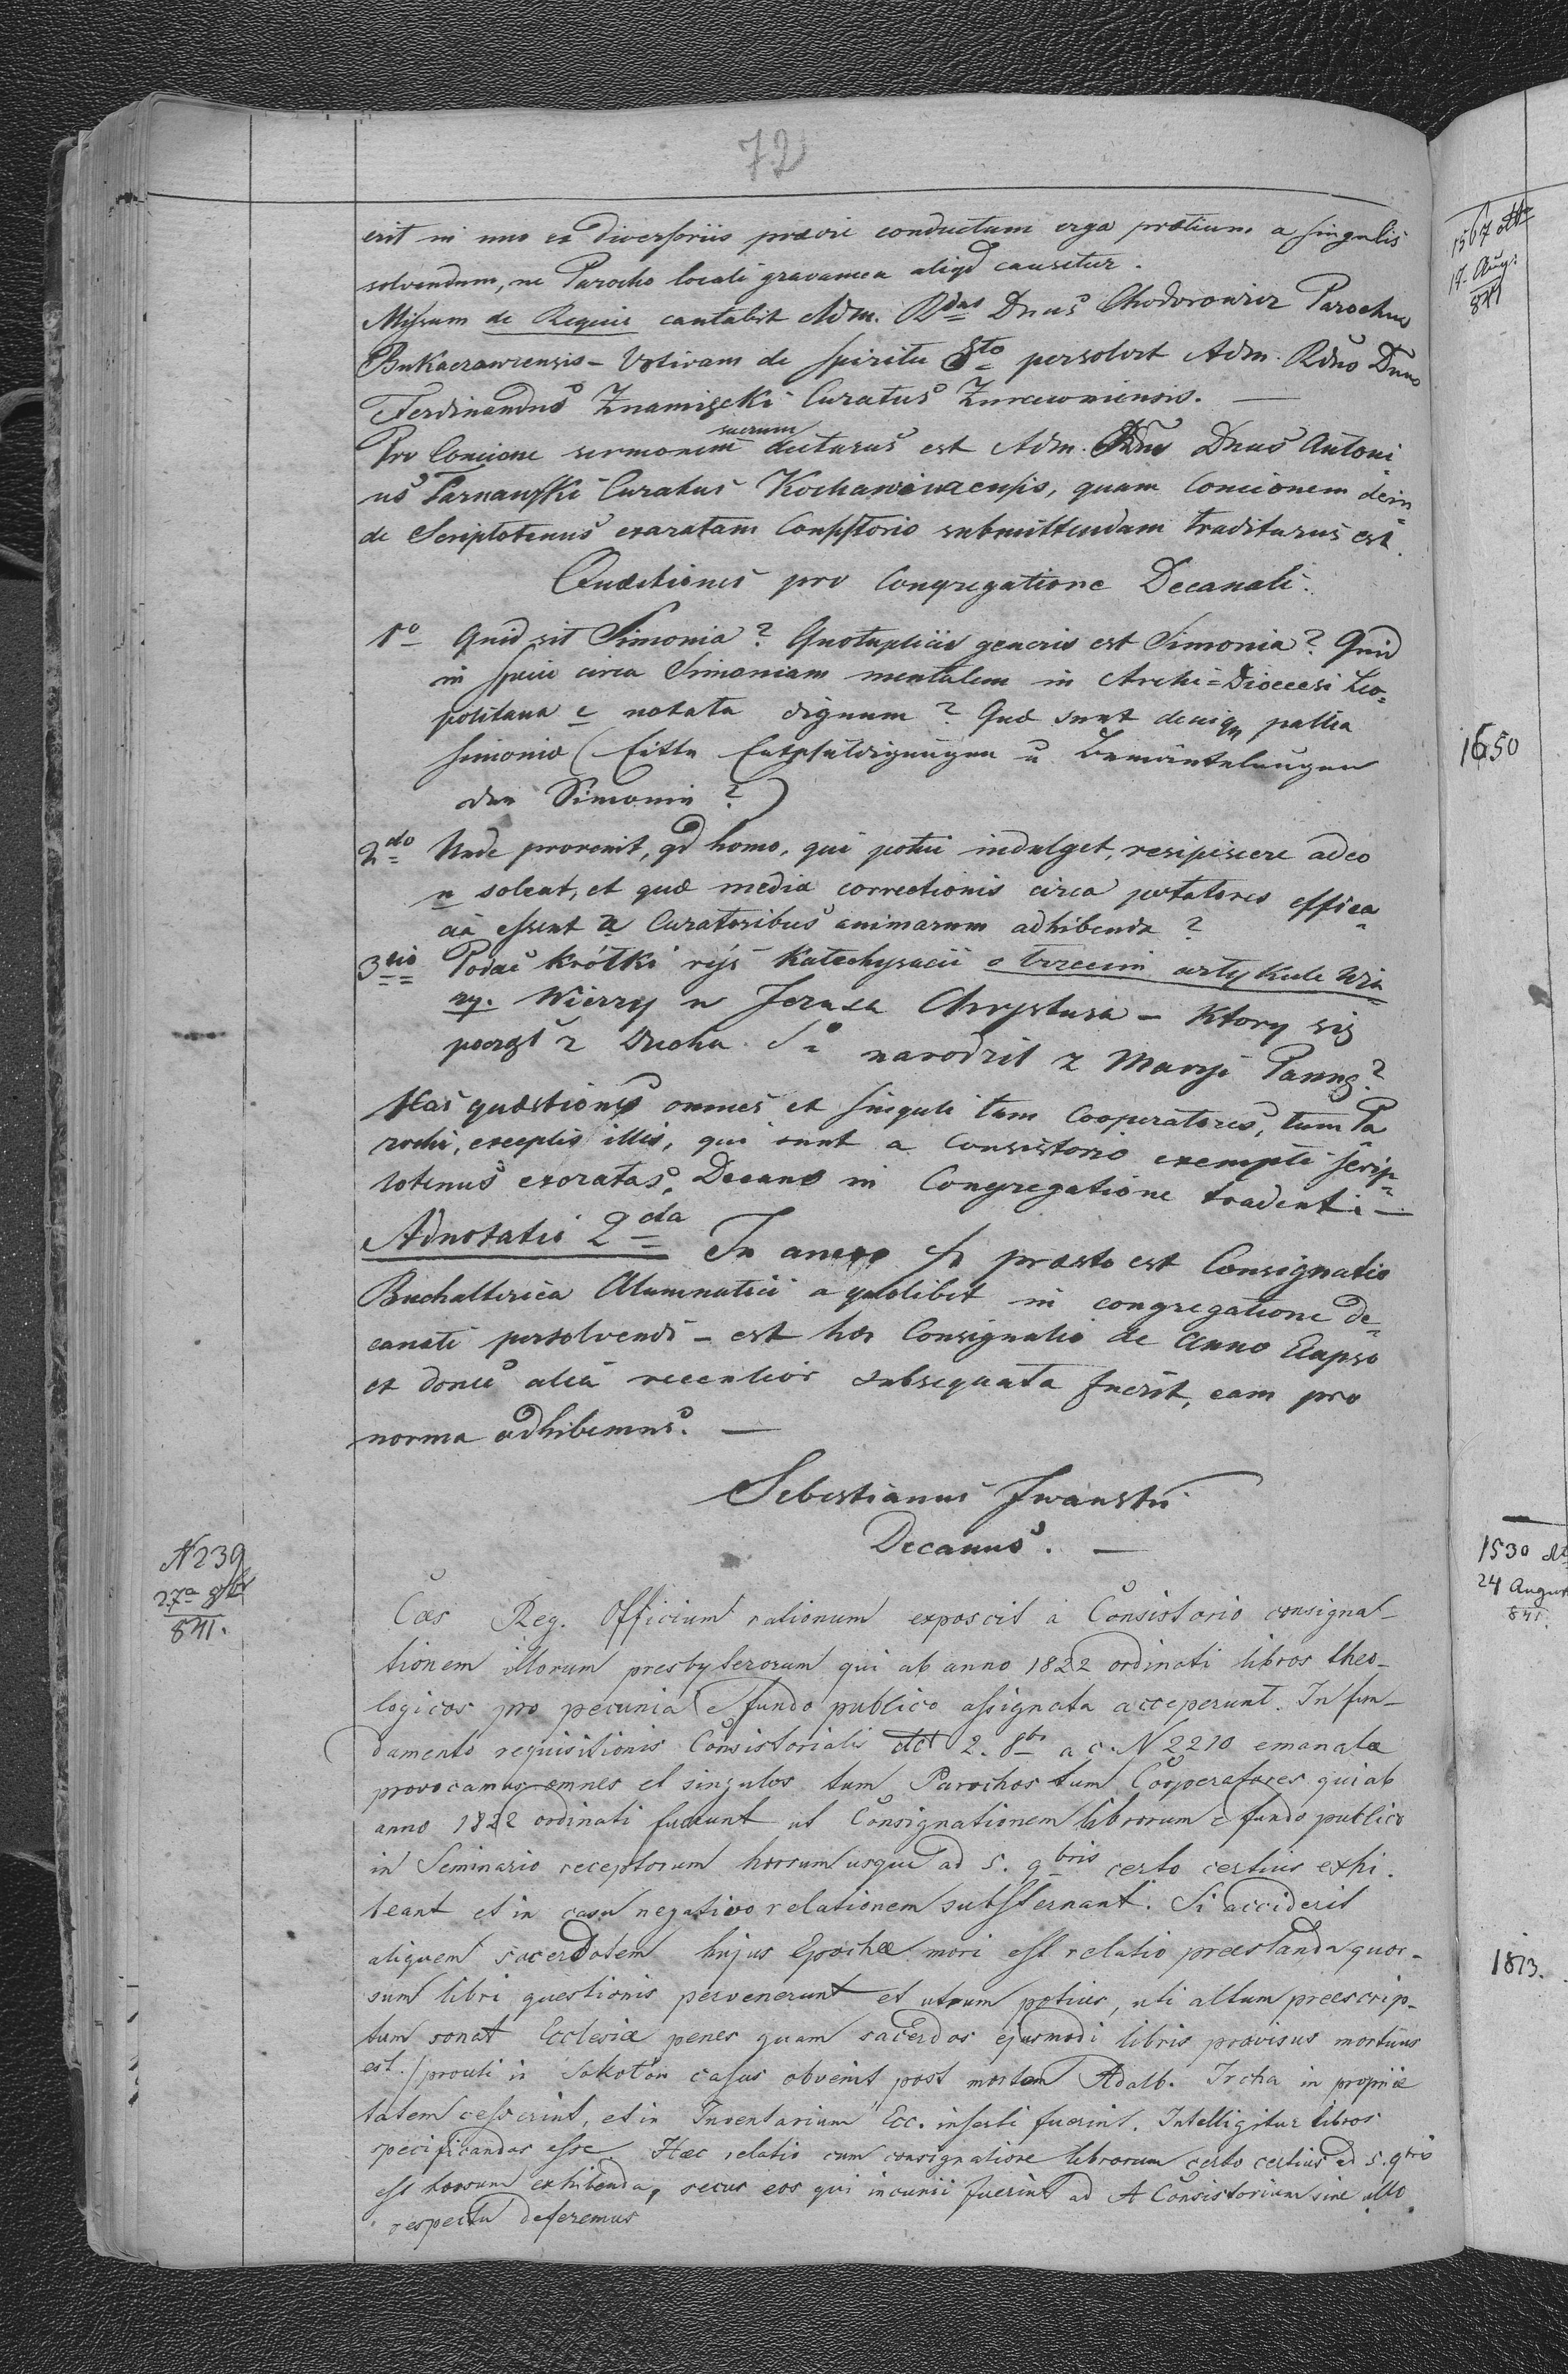 72
erit in uno ex diversoriis prævie conductum erga prætium a singulis
solvendum, ne Parocho locali gravamen aliqd causetur.
Missam de Requie cantabit Adm. Rdus Dnus Chodorowicz Parochus
Bukaczowcensis – Votivam de Spiritu Sto persolvet Adm. Rdus Dnus
Ferdinandus Znamięcki Curatus Zurawnensis. —
Pro Concione sermonem sacrum dicturus est Adm. Rdus Dnus Antoni-
us Tarnawski Curatus Kochawinensis, quam Concionem dein=
de Scriptotenus exaratam Consistorio submittendam traditurus est.
Quæstiones pro Congregatione Decanali.
1o Quid sit Simonia? Quotuplicis generis est Simonia? Quid
in specie circa Simoniam mentalem in Archi=Dioecesi Leo=
politana e notata dignum? Quæ sunt deniq pallia
simoniæ (Entschuldigungen u Bemäntelungen
der Simonie?)
2do Unde provenit, qd homo, qui potui indulget, resipiscere adeo
n soleat, et quæ media correctionis circa potatores effica=
cia essent a Curatoribus animarum adhibenda?
3tio Podać krótki rys Katechyzacii o trzecim artykule Wia=
ry. Wierzy w Jezusa Chrystusa – Ktory się
począł z Ducha S. narodził z Maryi Panny?
Has quæstiones omnes et singuli tam Cooperatores, tum Pa
rochi, exceptis illis, qui sunt a Consistorio exempti scrip=
totenus exaratas, Decano in Congregatione tradent. —
Adnotatio 2da In anexo praesto est Consignatio
Buchalterica Alumnatici a quolibet in congregatione de=
canali persolvendi – est hæc Consignatio de Anno Elapso
et donec alia recentior subsequata fuerit, eam pro
norma adhibemus. —
Sebestianus Iwanski
Decanus. —
N 239
27a 8br
841.
Cæs Reg. Officium rationum exposcit a Consistorio consigna-
tionem illorum presbyterorum qui ab anno 1822 ordinati libros theo-
logicos pro pecunia e fundo publico assignata acceperunt. In fun-
damento requisitionis Consistorialis dto 2. 8br a c. N 2210 emanatæ
provocamus omnes et singulos tum Parochos tum Cooperatores qui ab
anno 1822 ordinati fuerunt ut Consignationem librorum e fundo publico
in Seminario receptorum horsum usque ad 5. 9bris certo certius exhi-
beant et in casu negativo relationem substernant. Si acciderit
aliquem sacerdotem hujus Epochæ mori est relatio præstanda quor-
sum libri questionis pervenerunt et utrum potius, uti altum præscrip-
tum sonat Ecclesiæ penes quam sacerdos ejusmodi libris provisus mortuus
est. / prouti in Sokołow casus obvenit post mortem Adalb. Ircha in proprie
tatem cesserint, et in Inventarium Ecc. inserti fuerint. Intelligitur libros
specificandos esse. Hæc relatio cum consignatione librorum certo certius ad 5. 9bris
est horsum exhibenda, secus eos qui incurii fuerint ad A Consistorium sine ullo
respectu deferemus
1567 
17. Aug:
841
1650
1530
24 August
841.
1813.